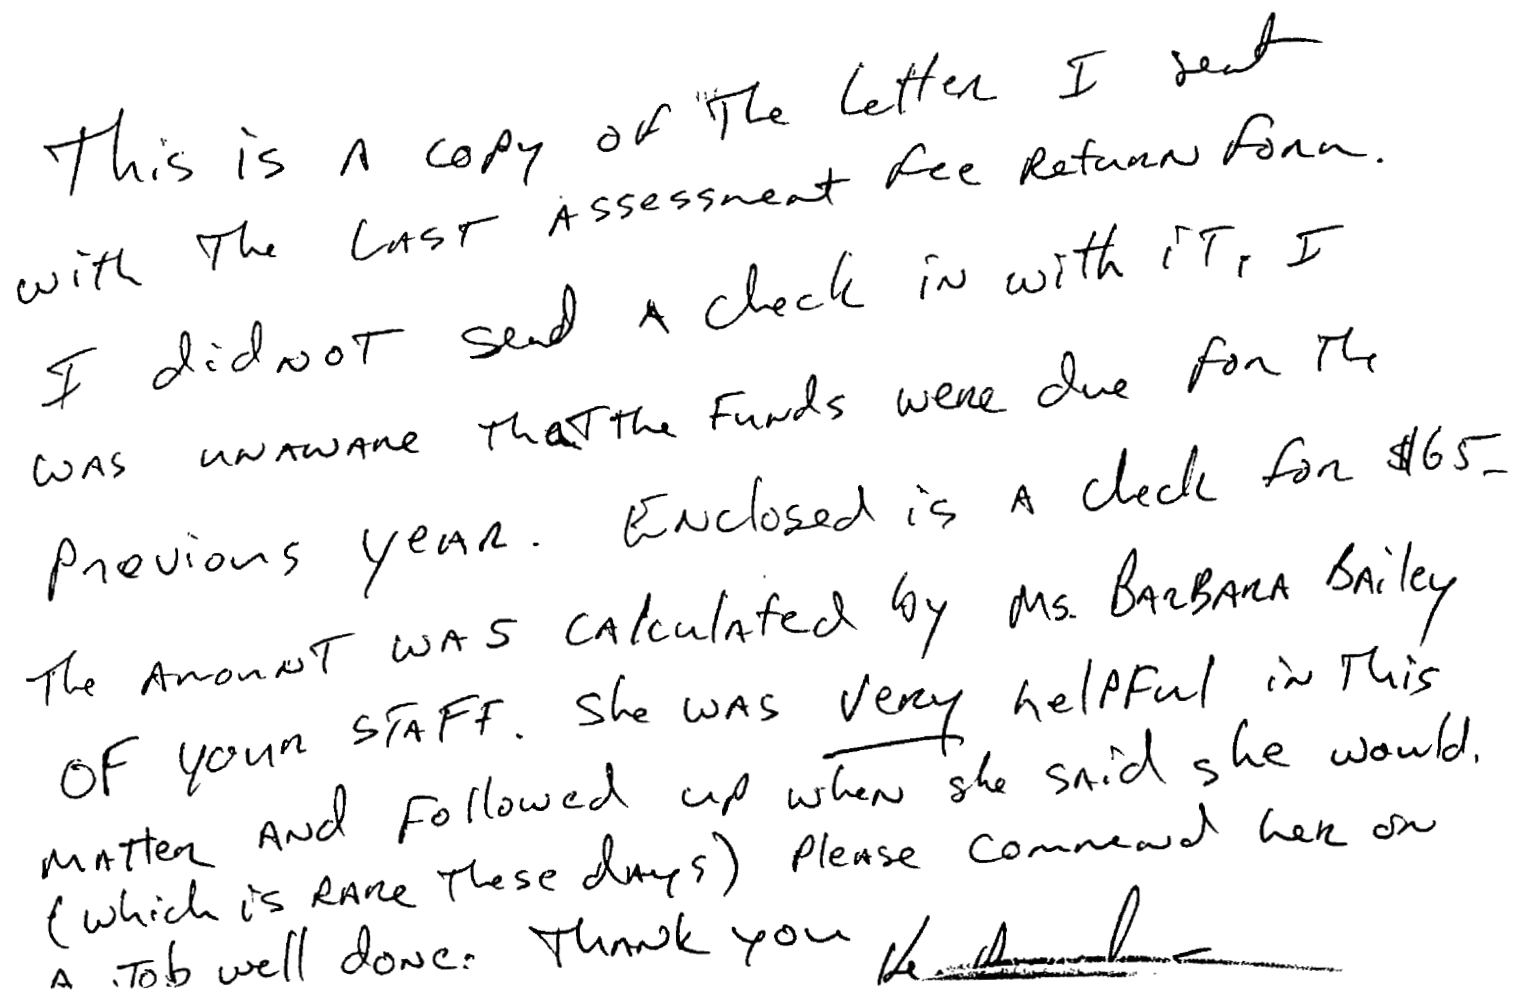 This is A copy of The Letter I sent
with The LAST Assessment fee Return form.
I did NOT send A check in with iT, I
WAS UNAWARE ThaT the Funds were due for The
Previous yeAR. ENclosed is A check for $65-
The AmouNT WAS CAlculAted by Ms. BARBARA BAiley
OF your STAFF. She WAS very helpful in This
MATTER AND Followed up wheN she sAid she would.
(which is RARE These dAys) PleAse commend her on
A Job well doNe. THANK you